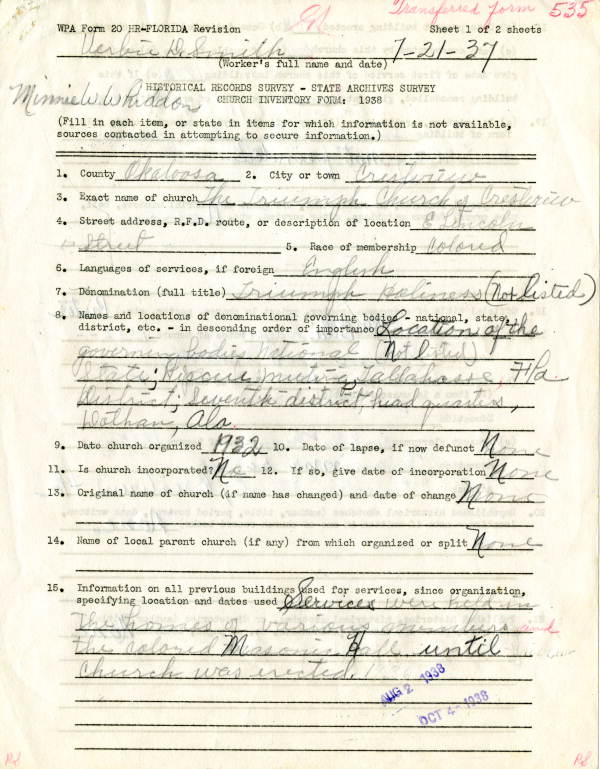 Transferred form 535
WPA Form 20 HR-FLORIDA Revision Sheet 1 of 2 sheets
D. Smith 7-21-37
(Worker's full name and date)
Minnie W. Whiddon
HISTORICAL RECORDS SURVEY - STATE ARCHIVES SURVEY
CHURCH INVENTORY FORM: 1938
(Fill in each item, or state in items for which information is not available,
sources contacted in attempting to secure information.)
1. County Okaloosa 2. City or town Crestview
3. Exact name of church The Triumph Church of Crestview
4. Street address, R.F.D. route, or description of location E. Lincoln
Street 5. Race of membership Colored
6. Languages of services, if foreign English
7. Denomination (full title) Triumph Holiness (Not listed)
8. Names and locations of denominational governing bodies - national, state,
district, etc. - in descending order of importance Location of the
governing bodies National (Not listed)
State; meeting, Tallahassee, Fla.
District; Seventh district, head quarters,
Dothan, Ala.
9. Date church organized 1932 10. Date of lapse, if now defunct None
11. Is church incorporated? No 12. If so, give date of incorporation None
13. Original name of church (if name has changed) and date of change None
14. Name of local parent church (if any) from which organized or split None
15. Information on all previous buildings used for services, since organization,
specifying location and dates used Services were held in
the homes of various members and
the colored Masonic Hall until
church was erected.
AUG 2 1938
OCT 4 - 1938
PS PS